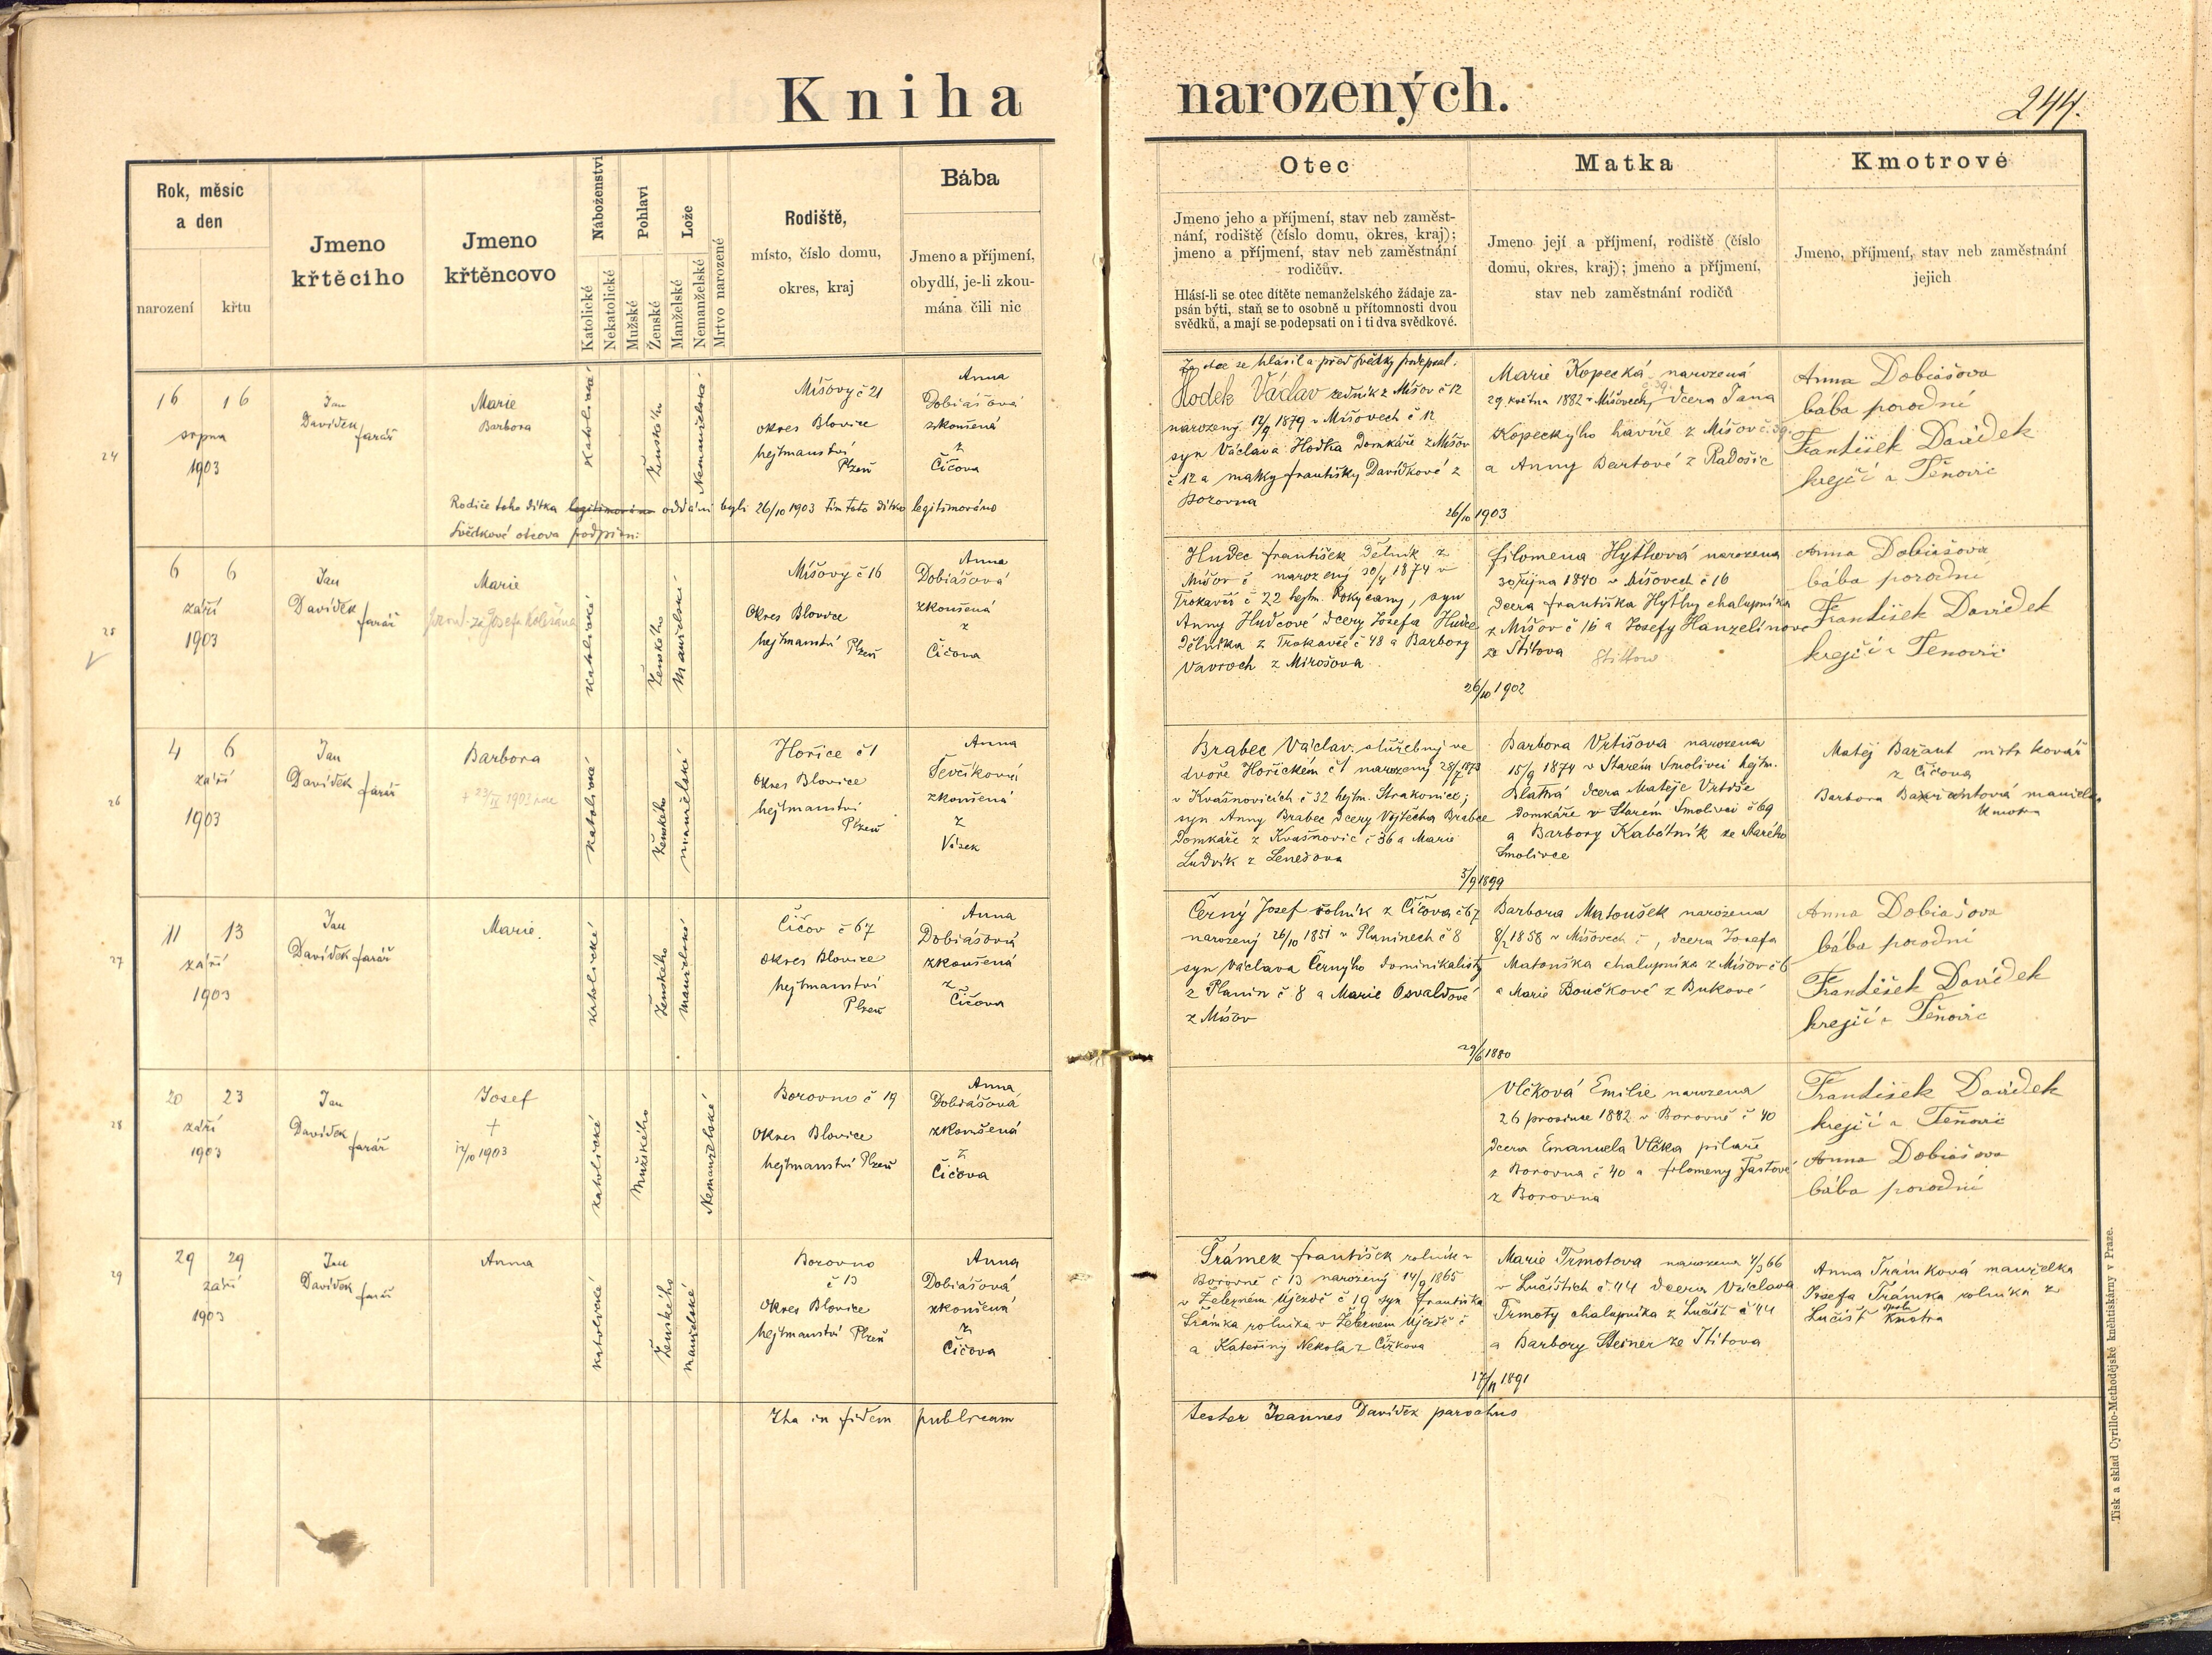 Kniha narozených.
244.
Rok, měsíc
a den
narození
křtu
Jmeno
křtěcího
Jmeno
křtěncovo
Náboženství
Katolické
Nekatolické
Pohlaví
Mužské
Ženské
Lože
Manželské
Nemanželské
Mrtvo narozené
Rodiště,
místo, číslo domu,
okres, kraj
Bába
Jmeno a příjmení,
obydlí, je-li zkou-
mána čili nic
Otec
Jmeno jeho a příjmení, stav neb zaměst-
nání, rodiště (číslo domu, okres, kraj);
jmeno a příjmení, stav neb zaměstnání
rodičův.
Hlásí-li se otec dítěte nemanželského žádaje za-
psán býti, staň se to osobně u přítomnosti dvou
svědků, a mají se podepsati on i ti dva svědkové.
Matka
Jmeno její a příjmení, rodiště (číslo
domu, okres, kraj); jmeno a příjmení,
stav neb zaměstnání rodičů
Kmotrové
Jmeno, příjmení, stav neb zaměstnání
jejich
24
16 16
srpna
1903
Jan
Davídek
farář
Marie
Barbora
katolické
Ženského
Nemanželské
Míšovy č 21
okres Blovice
hejtmanství
Plzeň
Anna
Dobiášová
zkoušená
z
Číčova
Za otce se hlásil a před svědky podepsal:
Hodek Václav zedník z Míšov č 12
narozený 12/9 1879 v Míšovech č 12
syn Václava Hodka domkáře z Míšov
č 12 a matky Františky Davídkové z
Borovna
Marie Kopecká narozená
č 39.
29 května 1882 v Míšovech, dcera Jana
Kopeckýho havíře z Míšov č. 39.
a Anny Bartové z Radošic
26/10 1903
Anna Dobiášova
bába porodní
František Davídek
krejčí z Těnovic
Rodiče toho dítka legitimováno oddáni byli 26/10 1903 tím toto dítko legitimováno
Svědkové otcova podpisu:
25
6 6
září
1903
Jan
Davídek
farář
Marie
katolické
Ženského
Manželské
Míšovy č 16
Okres Blovice
hejtmanství Plzeň
Anna
Dobiášová
zkoušená
z
Číčova
Hudec František dělník z
Míšov č narozený 30/4 1874 v
Trokavči č 22 hejtm. Rokycany, syn
Anny Hudcové dcery Josefa Hudce
dělníka z Trokavče č 48 a Barbory
Vavroch z Mirošova
Filomena Hythová narozena
30 října 1880 v Míšovech č 16
dcera Františka Hythy chalupníka
z Míšov č 16 a Josefy Hanzelínove
ze Štítova
26/10 1902
Anna Dobiášova
bába porodní
František Davídek
krejčí z Těnovic
26
4 6
září
1903
Jan
Davídek farář
Barbora
katolické
Ženského
manželské
Hořice č 1
Okres Blovice
hejtmanství
Plzeň
Anna
Ševčíková
zkoušená
z
Vísek
Brabec Václav služebný ve
dvoře Hořickém č 1 narozený 28/7 1873
v Kvášňovicích č 32 hejtm. Strakonice;
syn Anny Brabec dcery Vojtěcha Brabce
domkáře z Kvášňovic č 36 a Marie
Ludvík z Lenešova
Barbora Vrtišova narozena
15/9 1874 v Starém Smolivci hejtm.
Blatná dcera Matěje Vrtiše
domkáře v Starém Smolivci č 69
a Barbory Kabátník ze Starého
Smolivce
5/9 1899
Matěj Bažant mistr kovář
z Číčova
Barbora Bažantová manželka
kmotra
27
11 13
září
1903
Jan
Davídek farář
Marie.
katolické
Ženského
manželské
Číčov č 67
okres Blovice
hejtmanství
Plzeň
Anna
Dobiášová
zkoušená
z
Číčova
Černý Josef rolník z Číčova č 67
narozený 26/10 1851 v Planinech č 8
syn Václava Černýho dominikalisty
z Planin č 8 a Marie Osvaldové
z Míšov
Barbora Matoušek narozena
8/2 1858 v Míšovech č , dcera Josefa
Matouška chalupníka z Míšov č 6
a Marie Boučkové z Bukové
29/6 1880
Anna Dobiášova
bába porodní
František Davídek
krejčí z Těnovic
28
20 23
září
1903
Jan
Davídek
farář
Josef
†
/10 1903
katolické
Mužského
Nemanželské
Borovno č 19
Okres Blovice
hejtmanství Plzeň
Anna
Dobiášová
zkoušená
z
Číčova
Vlčková Emilie narozena
26 prosince 1882 v Borovně č 40
dcera Emanuela Vlčka pilaře
z Borovna č 40 a Filomeny Tastové
z Borovna
František Davídek
krejčí z Těnovic
Anna Dobiášova
bába porodní
29
29 29
září
1903
Jan
Davídek farář
Anna
katolické
Ženského
manželské
Borovno
č 13
Okres Blovice
hejtmanství Plzeň
Anna
Dobiášová
zkoušená
z
Číčova
Šrámek František rolník z
Borovně č 13 narozený 14/9 1865
v Železném Újezdě č 19 syn Františka
Šrámka rolníka v Železném Újezdě č
a Kateřiny Nekola z Čížkova
Marie Trmotova narozena 4/3 66
v Lučištích č 44 dcera Václava
Trmoty chalupníka z Lučišť č 44
a Barbory Steiner ze Štítova
17/11 1891
Anna Šrámková manželka
Josefa Šrámka rolníka z
Lučišť kmotra
Ita in fidem publicam
testor Joannes Davídek parochus
Tisk a sklad Cyrillo-Methodějské kněhtiskárny v Praze.